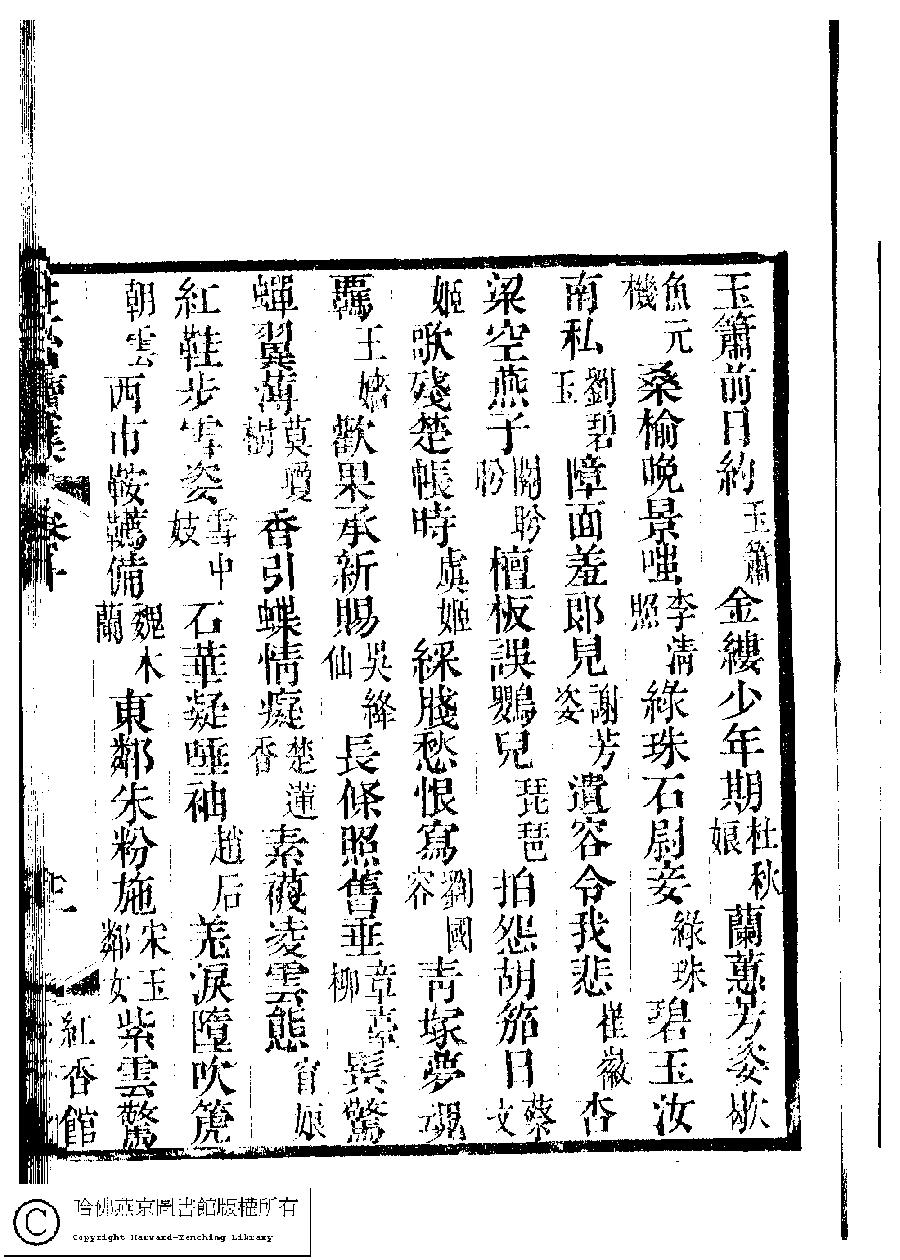 玉簫前日約玉簫金縷少年期杜秋娘蘭蕙芳姿歇
魚元機桑榆晚景嗤李清照綠珠石尉妾綠珠碧玉汝
南私劉碧玉障面羞郎見謝芳姿遺容令我悲崔徽杏
梁空燕子關盼盼檀板誤鸚兒琵琶拍怨胡笳日蔡文
姬歌殘楚帳時虞姬綵牋愁恨寫劉國容青塚夢魂
羈王嬙歡果承新賜吳絳仙長條照舊垂章臺柳鬓驚
蟬翼薄莫瓊樹香引蝶情癡楚蓮香素襪凌雲態窅娘
紅鞋步雪姿雪中妓石華凝唾袖趙后羌淚墮吹篪
朝雲西市鞍韉備魏木蘭東鄰朱粉施宋玉鄰女紫雲驚
紅香館
哈佛燕京圖書館版權所有
Copyright Harvard-Yenching Library